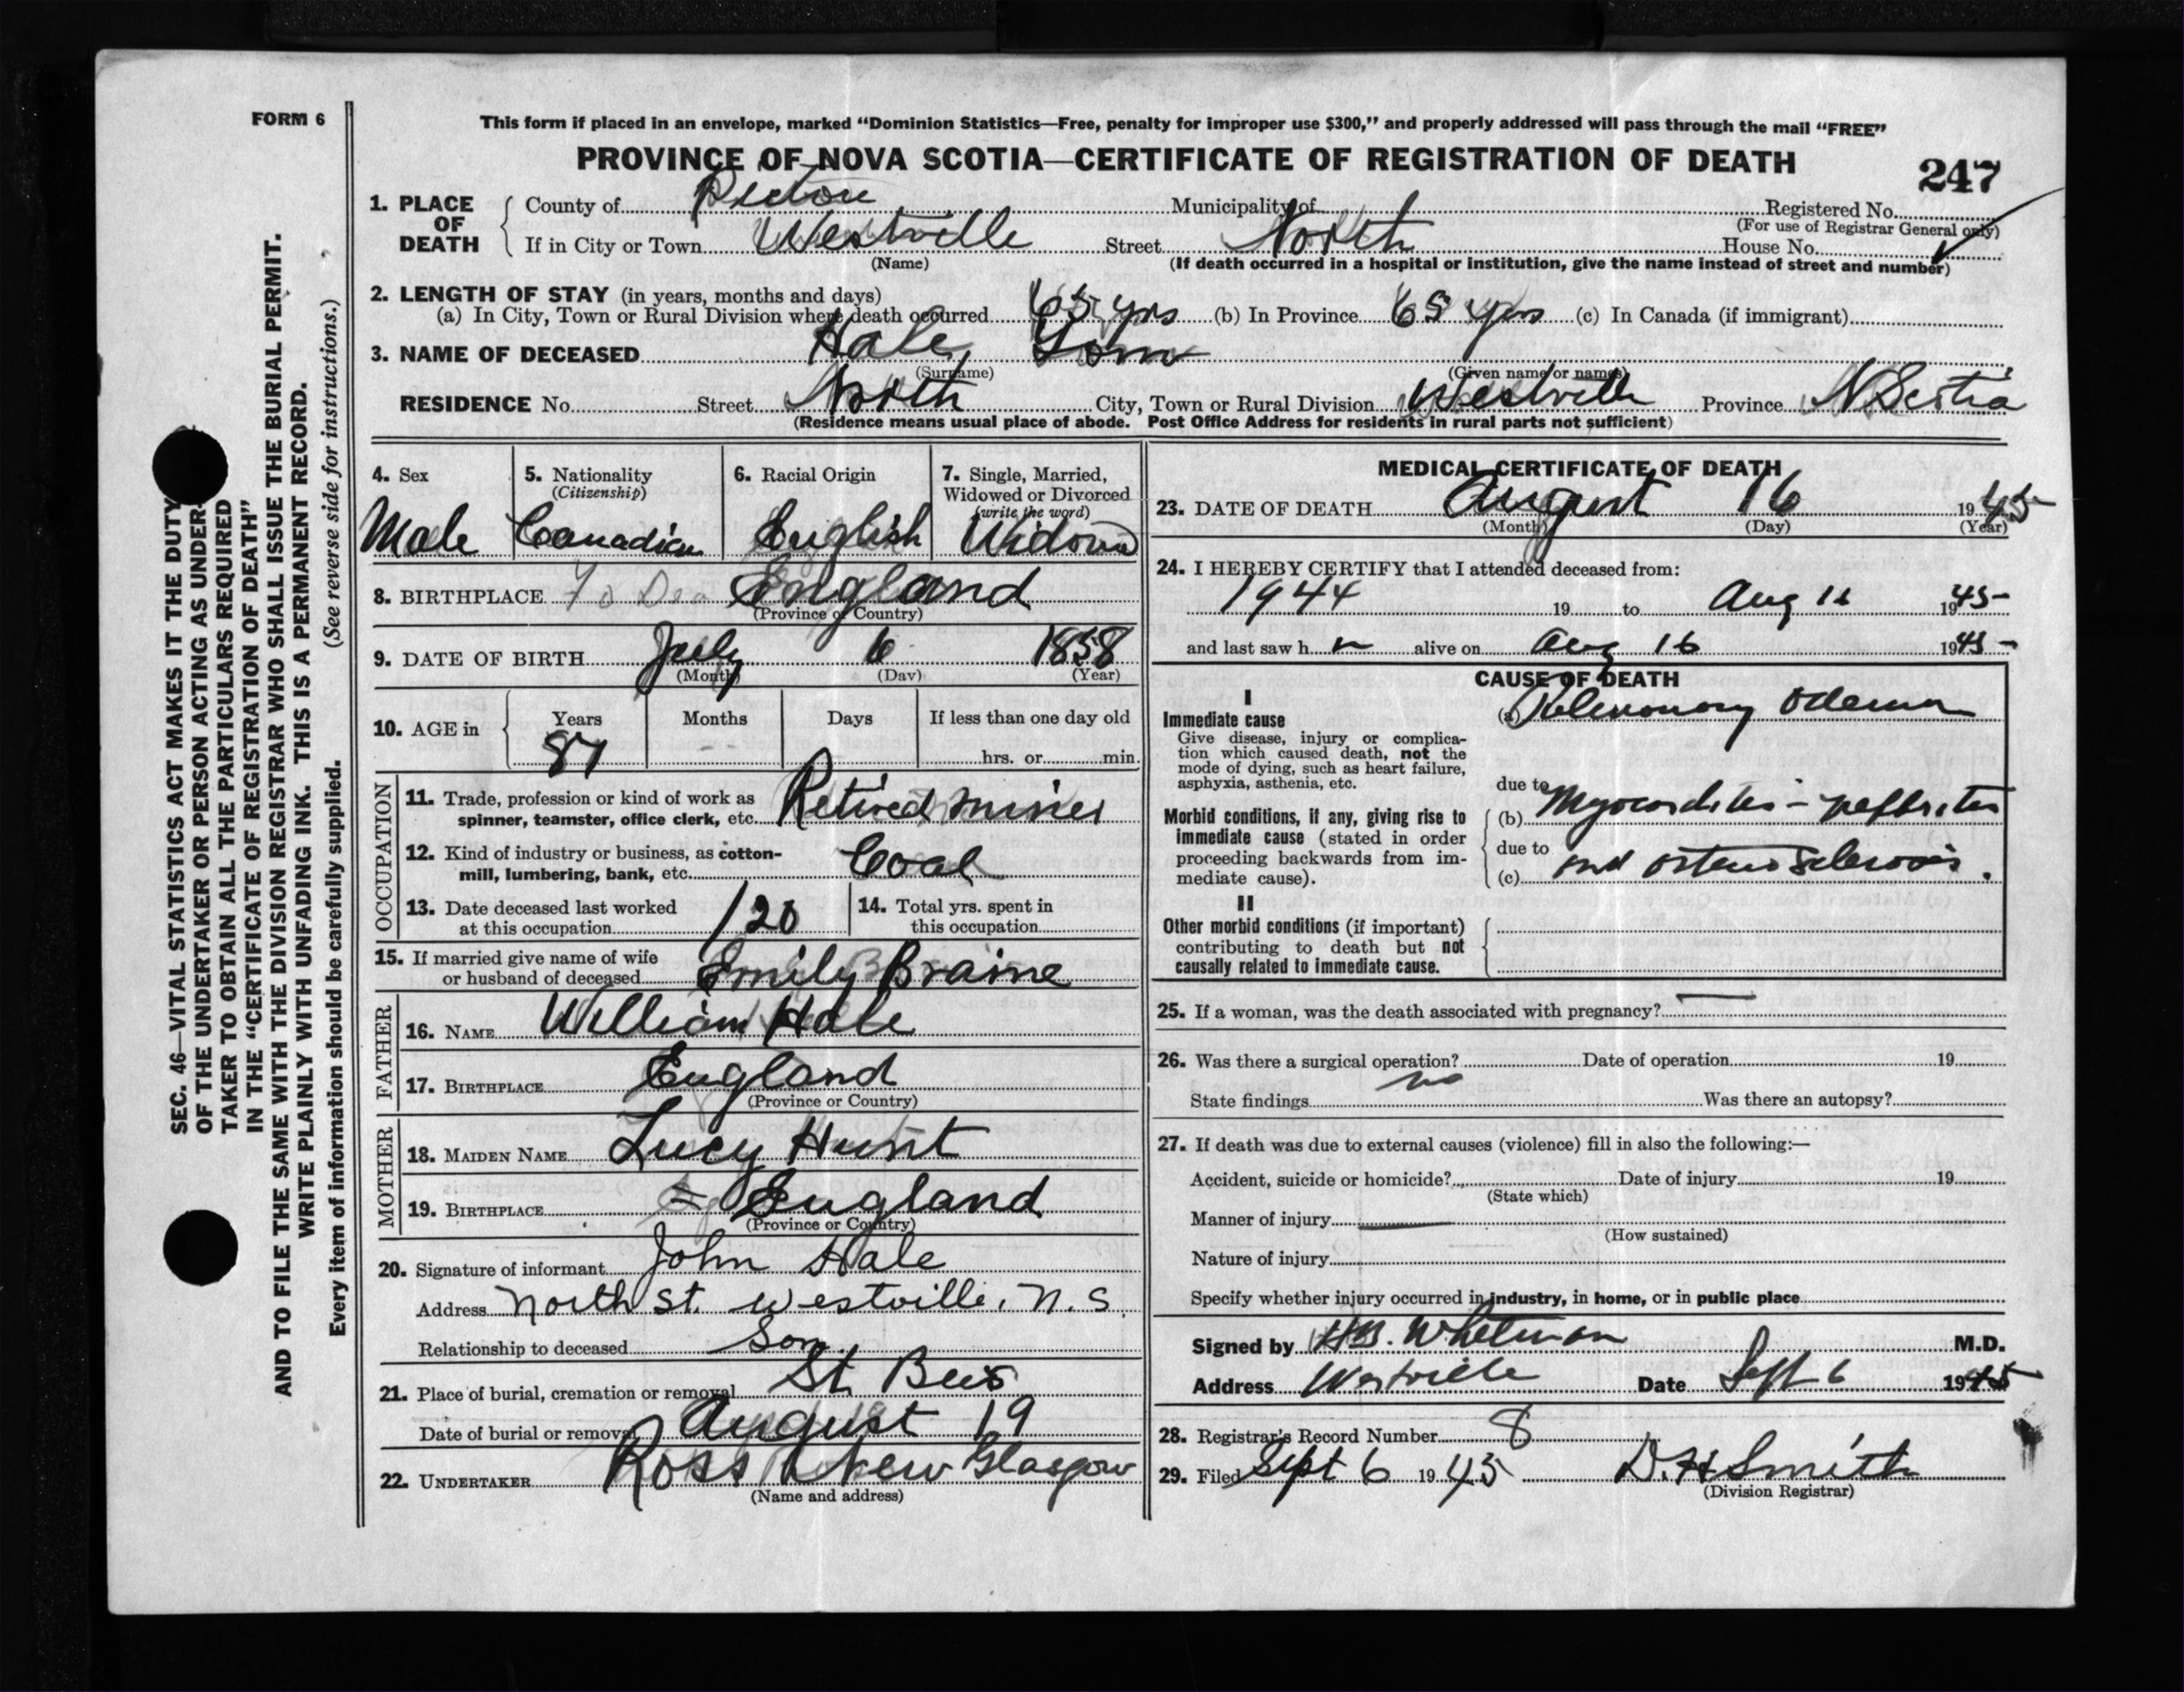 FORM 6
This form if placed in an envelope, marked “Dominion Statistics—Free, penalty for improper use $300,” and properly addressed will pass through the mail “FREE”
PROVINCE OF NOVA SCOTIA—CERTIFICATE OF REGISTRATION OF DEATH
247
1. PLACE OF DEATH { County of Pictou Municipality of Registered No.
(For use of Registrar General only)
If in City or Town Westville Street North House No.
(Name) (If death occurred in a hospital or institution, give the name instead of street and number)
2. LENGTH OF STAY (in years, months and days)
(a) In City, Town or Rural Division where death occurred 65 yrs (b) In Province 65 yrs (c) In Canada (if immigrant)
3. NAME OF DECEASED Hale, Tom
(Surname) (Given name or names)
RESIDENCE No. Street North City, Town or Rural Division Westville Province N Scotia
(Residence means usual place of abode. Post Office Address for residents in rural parts not sufficient)
4. Sex
Male
5. Nationality
(Citizenship)
Canadian
6. Racial Origin
English
7. Single, Married,
Widowed or Divorced
(write the word)
8. BIRTHPLACE England
(Province or Country)
9. DATE OF BIRTH July 6 1858
(Month) (Day) (Year)
10. AGE in { Years Months Days If less than one day old
87 hrs. or min.
OCCUPATION
11. Trade, profession or kind of work as
spinner, teamster, office clerk, etc. Retired miner
12. Kind of industry or business, as cotton-
mill, lumbering, bank, etc. Coal
13. Date deceased last worked
at this occupation
14. Total yrs. spent in
this occupation
15. If married give name of wife
or husband of deceased Emily Braine
FATHER
16. NAME William Hale
17. BIRTHPLACE England
(Province or Country)
MOTHER
18. MAIDEN NAME Lucy Hunt
19. BIRTHPLACE England
(Province or Country)
20. Signature of informant John Hale
Address North St. Westville, N.S.
Relationship to deceased Son
21. Place of burial, cremation or removal St Bees
Date of burial or removal August 19
22. UNDERTAKER Ross New Glasgow
(Name and address)
MEDICAL CERTIFICATE OF DEATH
23. DATE OF DEATH August 16 1945
(Month) (Day) (Year)
24. I HEREBY CERTIFY that I attended deceased from:
1944 19 to Aug 16 1945
and last saw h m alive on Aug 16 1945
CAUSE OF DEATH
I
Immediate cause (a) Pulmonary Odema
Give disease, injury or complica-
tion which caused death, not the
mode of dying, such as heart failure,
asphyxia, asthenia, etc.
due to
Morbid conditions, if any, giving rise to (b) Myocarditis - nephritis
immediate cause (stated in order
proceeding backwards from im- due to
mediate cause). (c) and arteriosclerosis.
II
Other morbid conditions (if important)
contributing to death but not
causally related to immediate cause.
25. If a woman, was the death associated with pregnancy? —
26. Was there a surgical operation? no Date of operation 19
State findings Was there an autopsy?
27. If death was due to external causes (violence) fill in also the following:—
Accident, suicide or homicide? Date of injury 19
(State which)
Manner of injury
(How sustained)
Nature of injury
Specify whether injury occurred in industry, in home, or in public place
Signed by H.B. Whitman M.D.
Address Westville Date Sept 6 1945
28. Registrar's Record Number 8
29. Filed Sept 6 1945 D. H Smith
(Division Registrar)
SEC. 46—VITAL STATISTICS ACT MAKES IT THE DUTY
OF THE UNDERTAKER OR PERSON ACTING AS UNDER-
TAKER TO OBTAIN ALL THE PARTICULARS REQUIRED
IN THE “CERTIFICATE OF REGISTRATION OF DEATH”
AND TO FILE THE SAME WITH THE DIVISION REGISTRAR WHO SHALL ISSUE THE BURIAL PERMIT.
WRITE PLAINLY WITH UNFADING INK. THIS IS A PERMANENT RECORD.
Every item of information should be carefully supplied. (See reverse side for instructions.)